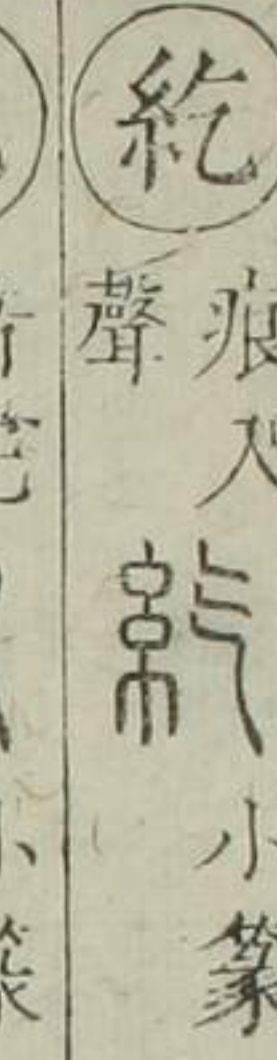 紇
痕入
聲
紇
小篆